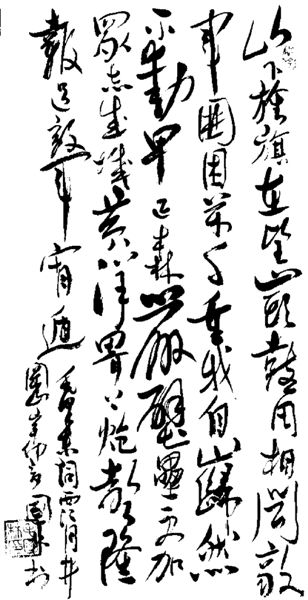 山下旌旗在望山頭鼓角相聞敵
軍圍困萬千重我自巋然
不動早已森嚴壁壘更加
眾志成城黃洋界上炮聲隆
報道敵軍宵遁
毛主席詞西江月井
岡山